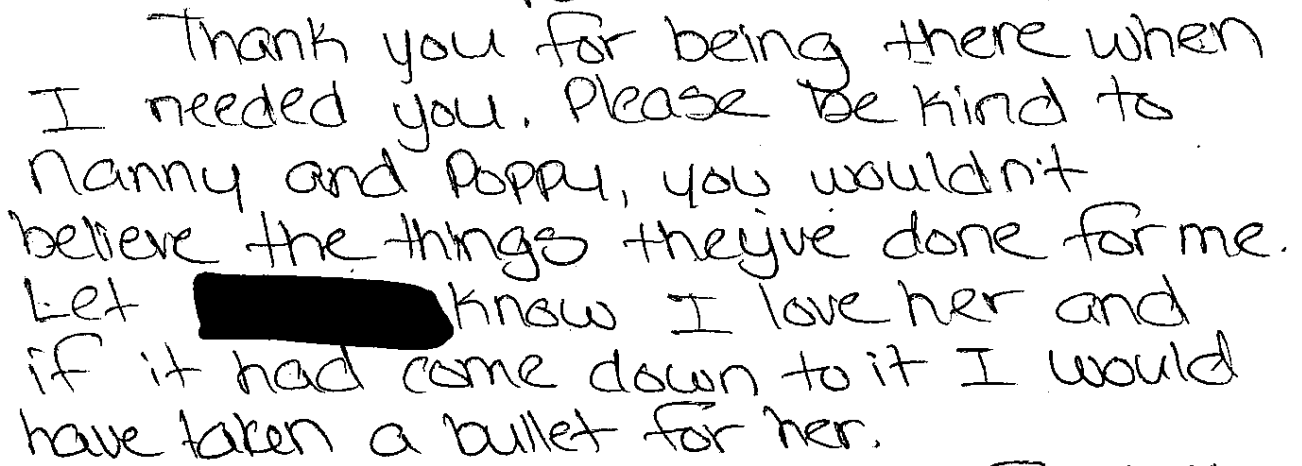 Thank you for being there when
I needed you. Please be kind to
Nanny and Poppy, you wouldn't
believe the things they've done for me.
Let know I love her and
if it had come down to it I would
have taken a bullet for her.